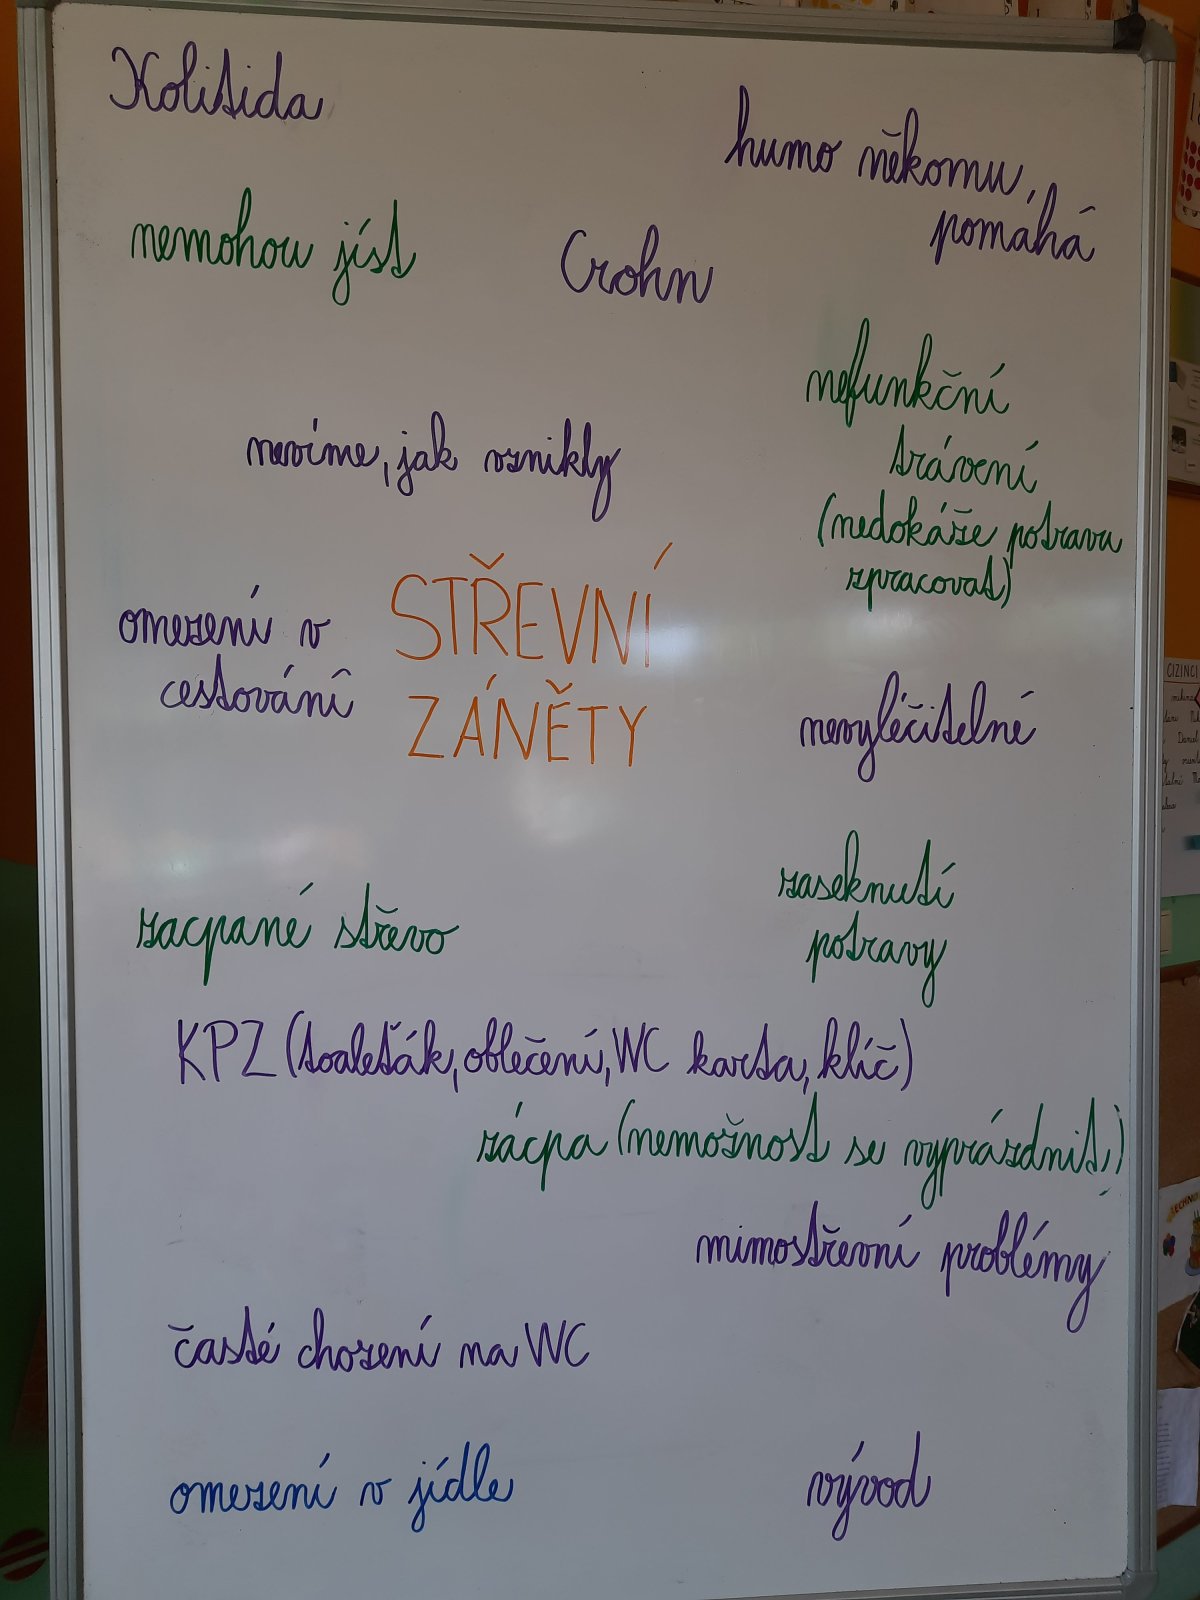 Kolitida
humo někomu,
pomáhá
nemohou jíst
Crohn
nefunkční
trávení
(nedokáže potravu
zpracovat)
nevíme, jak vznikly
STŘEVNÍ
ZÁNĚTY
omezení v
cestování
nevyléčitelné
zaseknutí
potravy
zacpané střevo
KPZ (toaleťák, oblečení, WC karta, klíč)
zácpa (nemožnost se vyprázdnit,)
mimostřevní problémy
časté chození na WC
omezení v jídle
vývod
CIZINCI
Daniel